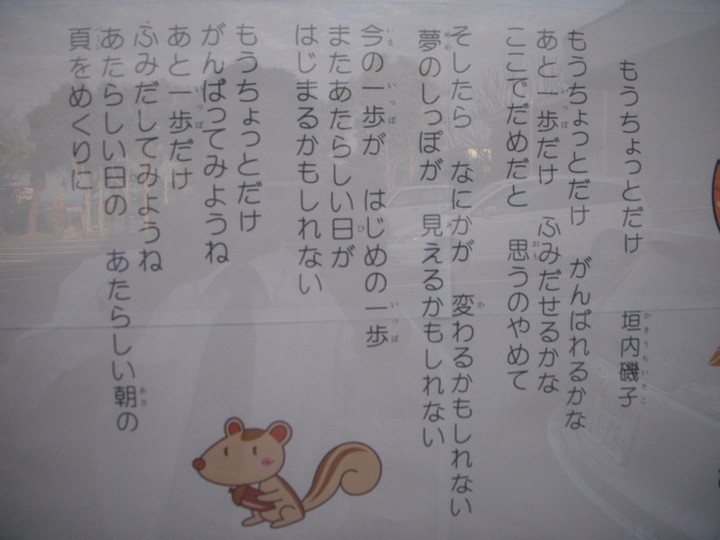 もうちょっとだけ　垣内磯子
もうちょっとだけ　がんばれるかな
あと一歩だけ　ふみだせるかな
ここでだめだと　思うのやめて
そしたら　なにかが　変わるかもしれない
夢のしっぽが　見えるかもしれない
今の一歩が　はじめの一歩
またあたらしい日が
はじまるかもしれない
もうちょっとだけ
がんばってみようね
あと一歩だけ
ふみだしてみようね
あたらしい日の　あたらしい朝の
頁をめくりに